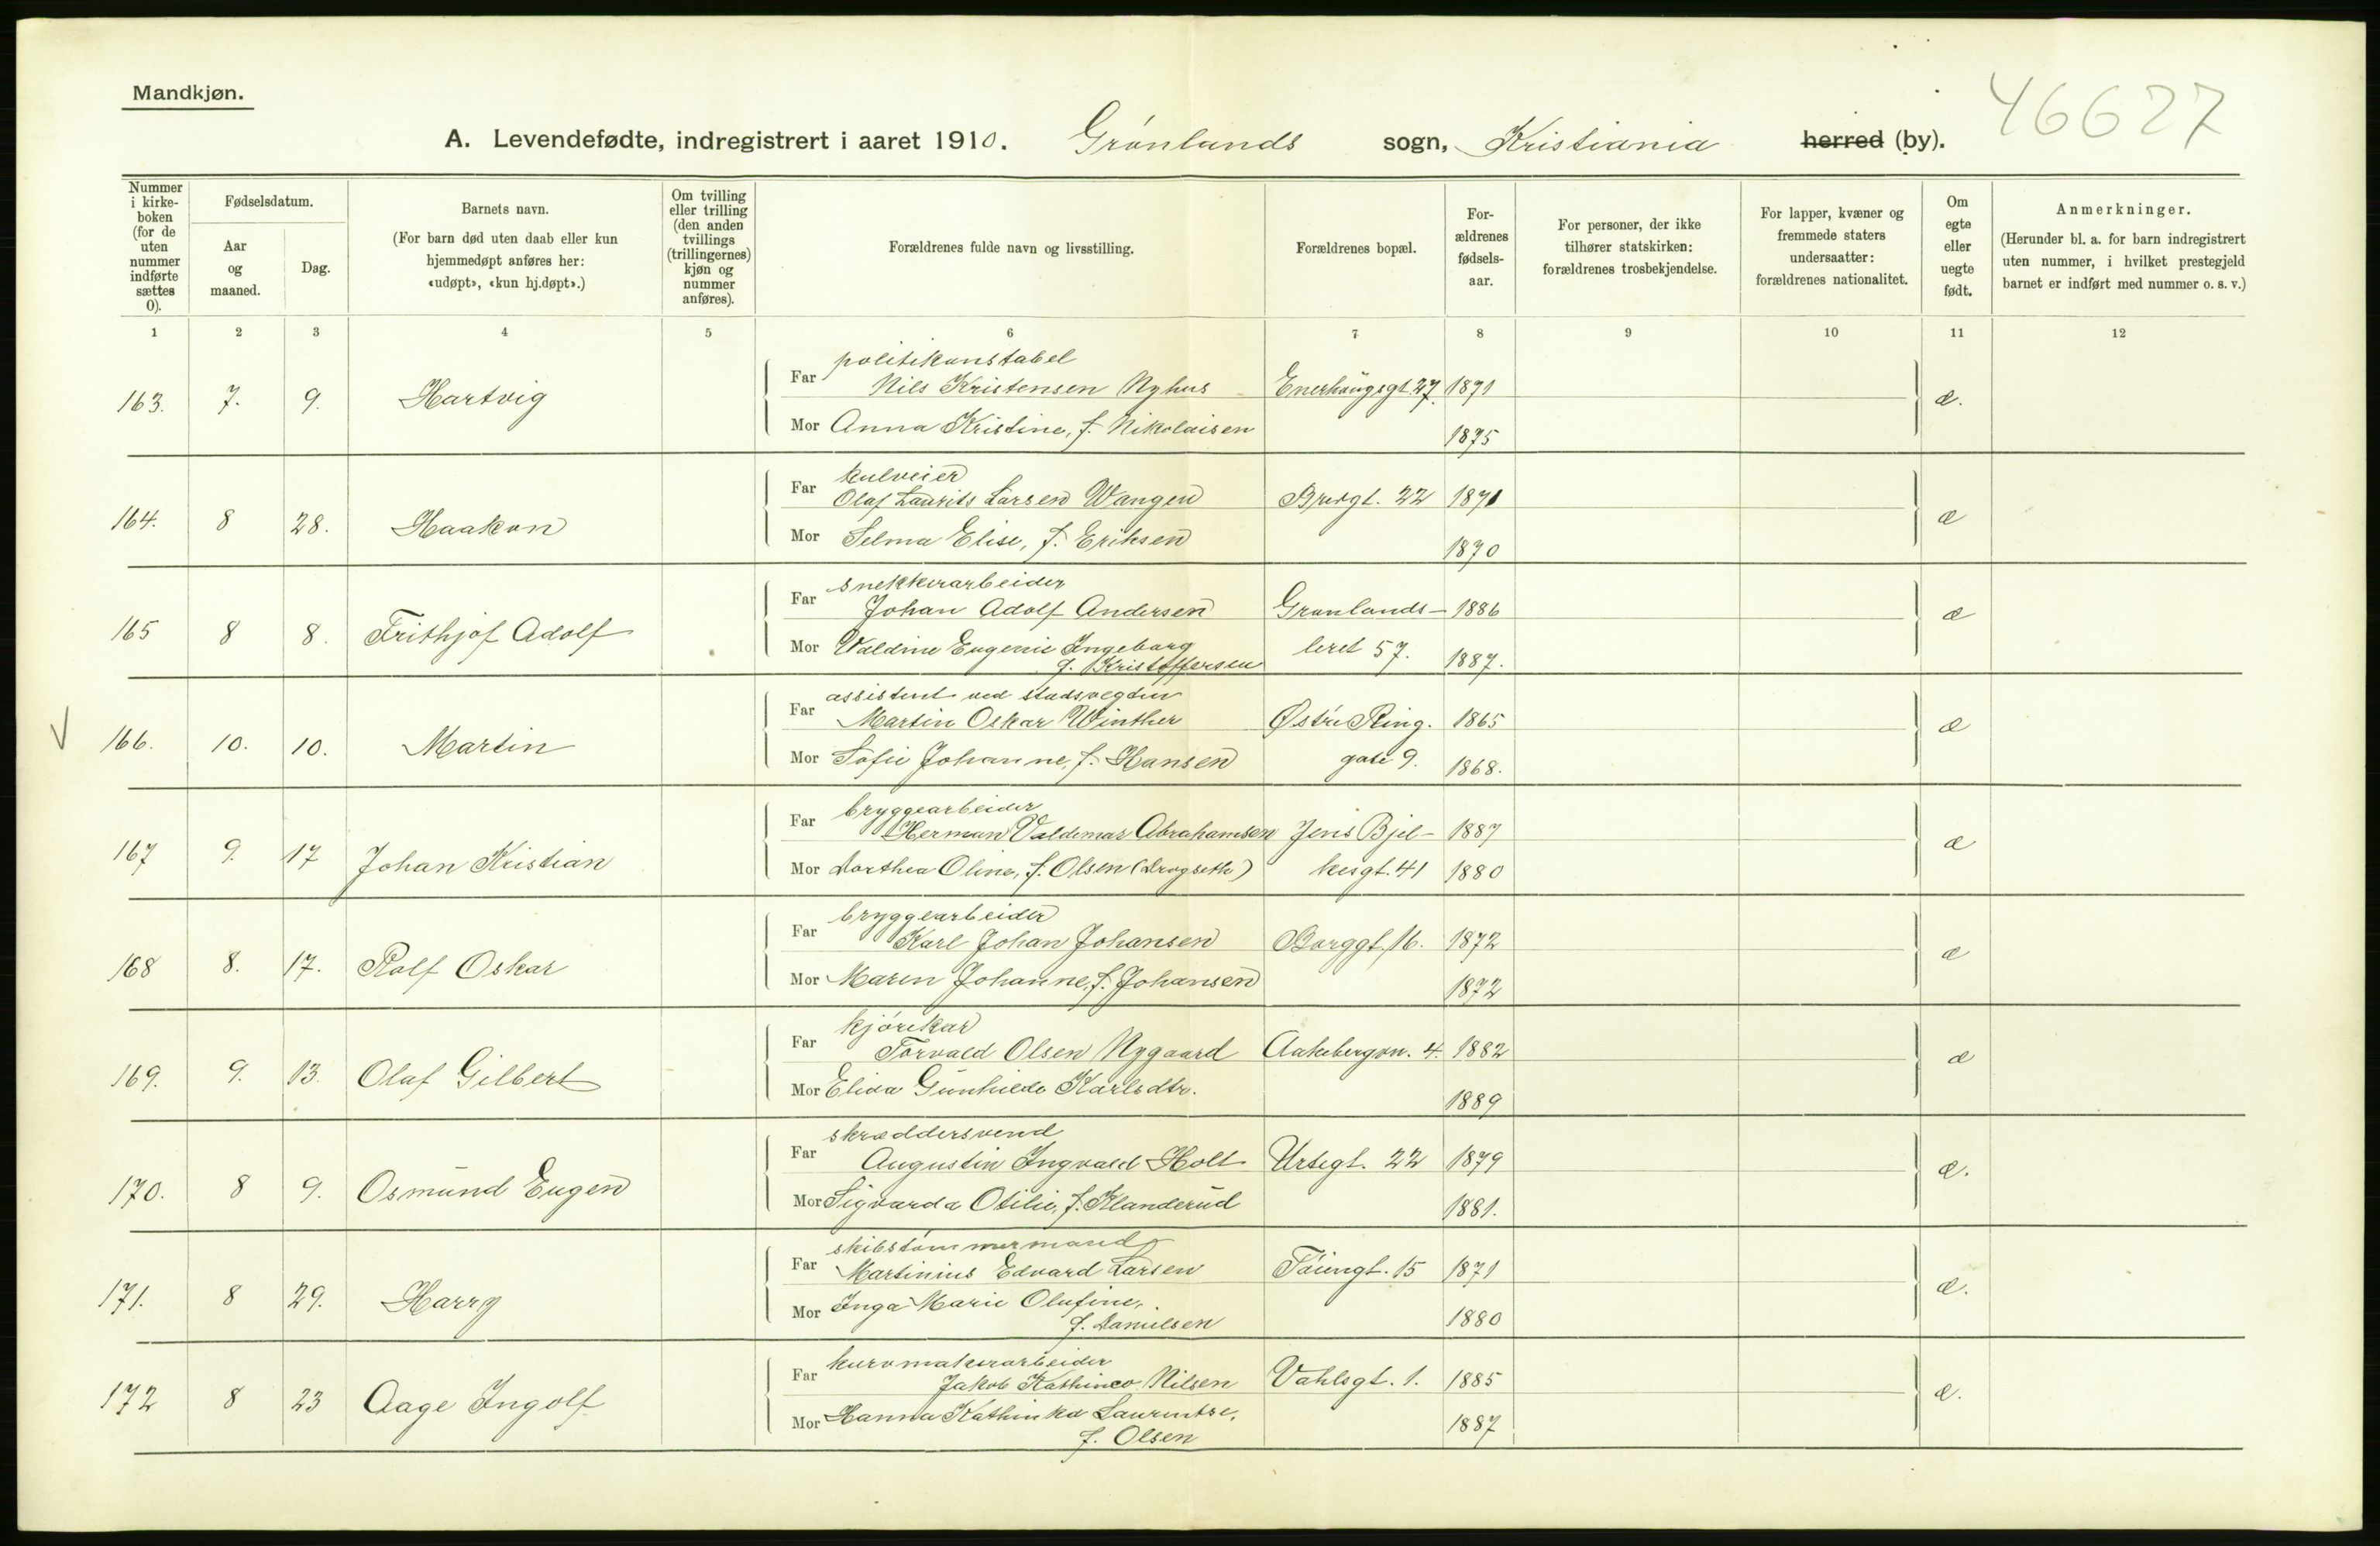 Mandkjøn.
46627
A. Levendefødte, indregistrert i aaret 1910. Grønlands sogn, Kristiania herred (by).
Nummer i kirke-boken (for de uten nummer indførte sættes 0).
Fødselsdatum.
Aar og maaned.
Dag.
Barnets navn.
(For barn død uten daab eller kun hjemmedøpt anføres her: «udøpt», «kun hj.døpt».)
Om tvilling eller trilling (den anden tvillings (trillingernes) kjøn og nummer anføres).
Forældrenes fulde navn og livsstilling.
Forældrenes bopæl.
For-ældrenes fødsels-aar.
For personer, der ikke tilhører statskirken: forældrenes trosbekjendelse.
For lapper, kvæner og fremmede staters undersaatter: forældrenes nationalitet.
Om egte eller uegte født.
Anmerkninger.
(Herunder bl. a. for barn indregistrert uten nummer, i hvilket prestegjeld barnet er indført med nummer o. s. v.)
1 2 3 4 5 6 7 8 9 10 11 12
politikonstabel
163. 7. 9. Hartvig Far Nils Kristensen Nyhus Enerhaugsgt. 27. 1871 æ.
Mor Anna Kristine, f. Nikolaisen 1875
kulveier
164. 8 28. Haakon Far Olaf Laurits Larsen Wangen Brugt. 22 1871 æ
Mor Selma Elise, f. Eriksen 1870
snekkerarbeider
165 8 8. Frithjof Adolf Far Johan Adolf Andersen Grønlands- 1886 æ
Mor Valdine Eugenie Ingeborg leret 57. 1887.
f. Kristoffersen
assistent ved stadsfogden
166. 10. 10. Martin Far Martin Oskar Winther Østre Ring. 1865 æ
Mor Sofie Johanne, f. Hansen gate 9. 1868.
bryggearbeider
167 9. 17 Johan Kristian Far Herman Valdemar Abrahamsen Jens Bjel- 1887 æ
Mor Dorthea Oline, f. Olsen (Drogseth) kesgt. 41 1880
bryggearbeider
168 8. 17. Rolf Oskar Far Karl Johan Johansen Borggt. 16. 1872 æ
Mor Maren Johanne, f. Johansen 1872
kjørekar
169. 9. 13. Olaf Gilbert Far Torvald Olsen Nygaard Aakebergvn. 4. 1882 æ
Mor Elida Gunhilde Karlsdtr. 1889
skræddersvend
170. 8 9. Osmund Eugen Far Augustin Ingvald Holt Urtegt. 22 1879 æ.
Mor Sigvarda Otilie, f. Klanderud 1881.
skibstømmermand
171. 8 29. Harry Far Martinius Edvard Larsen Tøiengt. 15 1871 æ.
Mor Inga Marie Olufine, 1880
f. Danielsen
kurvmakerarbeider
172 8 23 Aage Ingolf Far Jakob Nilsen Vahlsgt. 1. 1885 æ.
Mor Hanna Kathinka Laurentse, 1887
f. Olsen